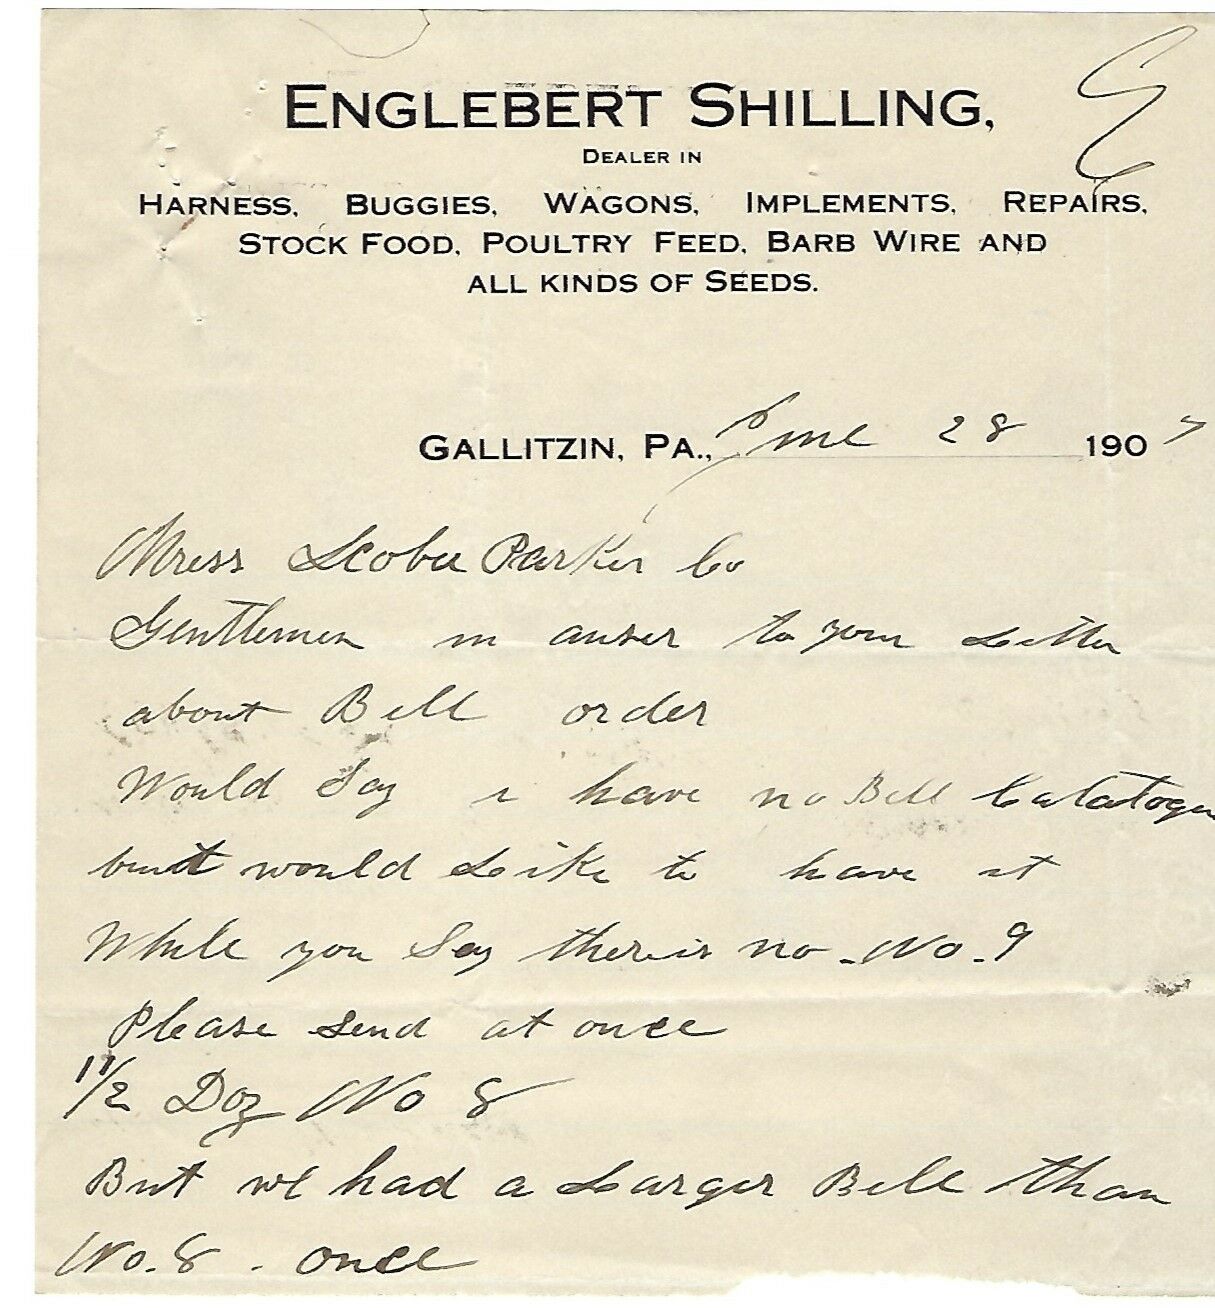 ENGLEBERT SHILLING,
DEALER IN
HARNESS, BUGGIES, WAGONS, IMPLEMENTS, REPAIRS,
STOCK FOOD, POULTRY FEED, BARB WIRE AND
ALL KINDS OF SEEDS.
GALLITZIN, PA., June 28 1907
Mress Scobee Parker Co
Gentlemen in anser to your Letter
about Bell order
Would Say i have no Bell Catatogu
but would Like to have it
While you Say there is no - No - 9
Please Send at once
1 1/2 Doz No 8
But we had a Larger Bell than
No. 8 . once